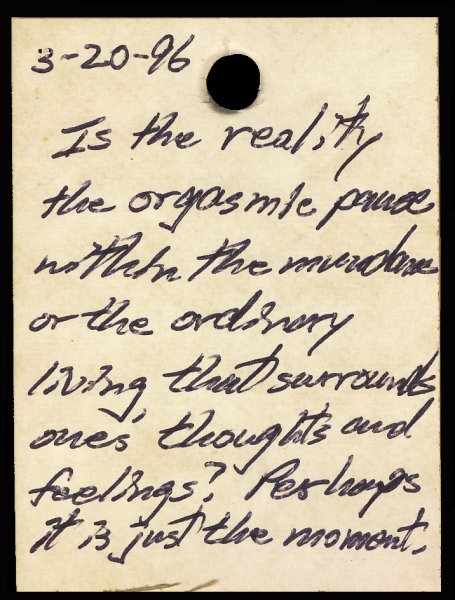 3-20-96
Is the reality
the orgasmic pause
within the mundane
or the ordinary
living that surrounds
one's thoughts and
feelings? Perhaps
it is just the moment.